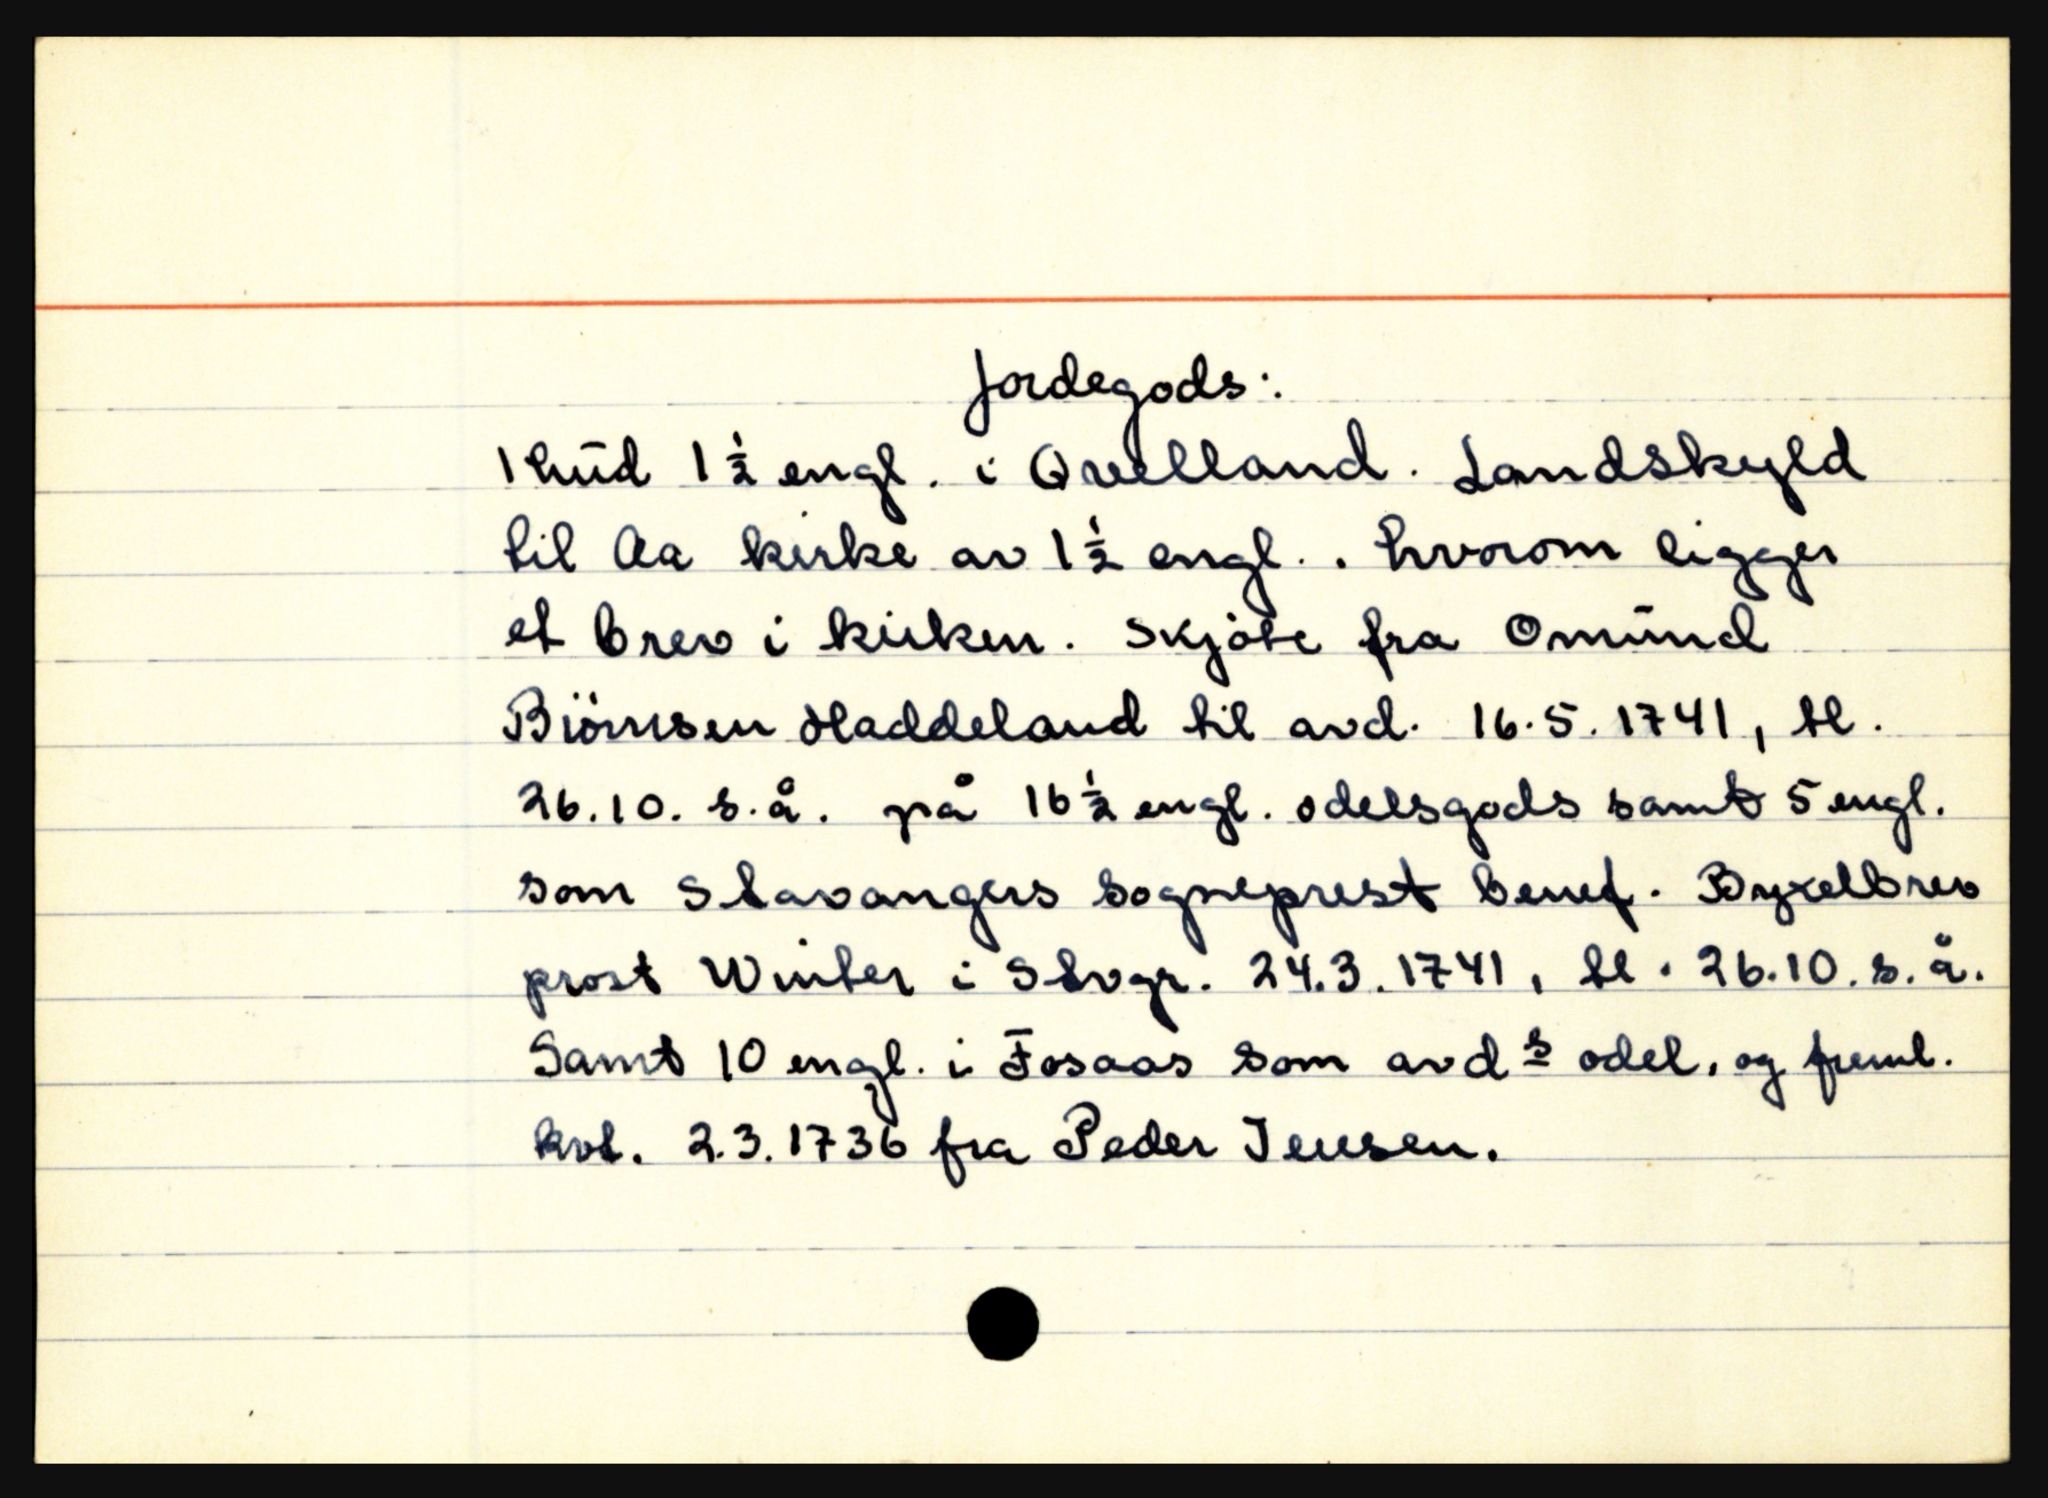 Jordegods:
1 hud 1½ engl. i Qvelland. Landskyld
til Aa kirke av 1½ engl.. hvorom ligger
et brev i kirken. Skjöte fra Omund
Biörnsen Haddeland til avd. 16.5.1741, tl.
26.10. s.å. på 16½ engl. odelsgods samt 5 engl.
som Stavangers sogneprest benef. Byxelbrev
prost Winter i Stvgr. 24.3.1741, tl. 26.10. s.å.
Samt 10 engl. i Fosaas som avds odel. og freml.
kvt. 2.3.1736 fra Peder Jensen.